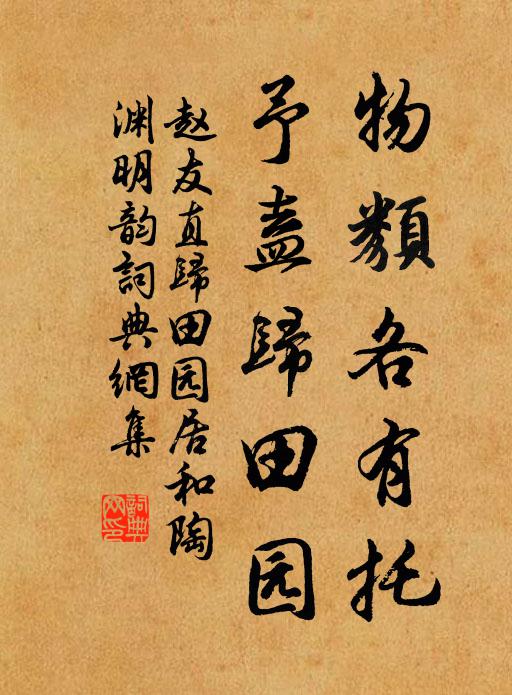 物類各有托
予盍歸田园
赵友直歸田园居和陶
渊明韵詞典網集
詞典網印